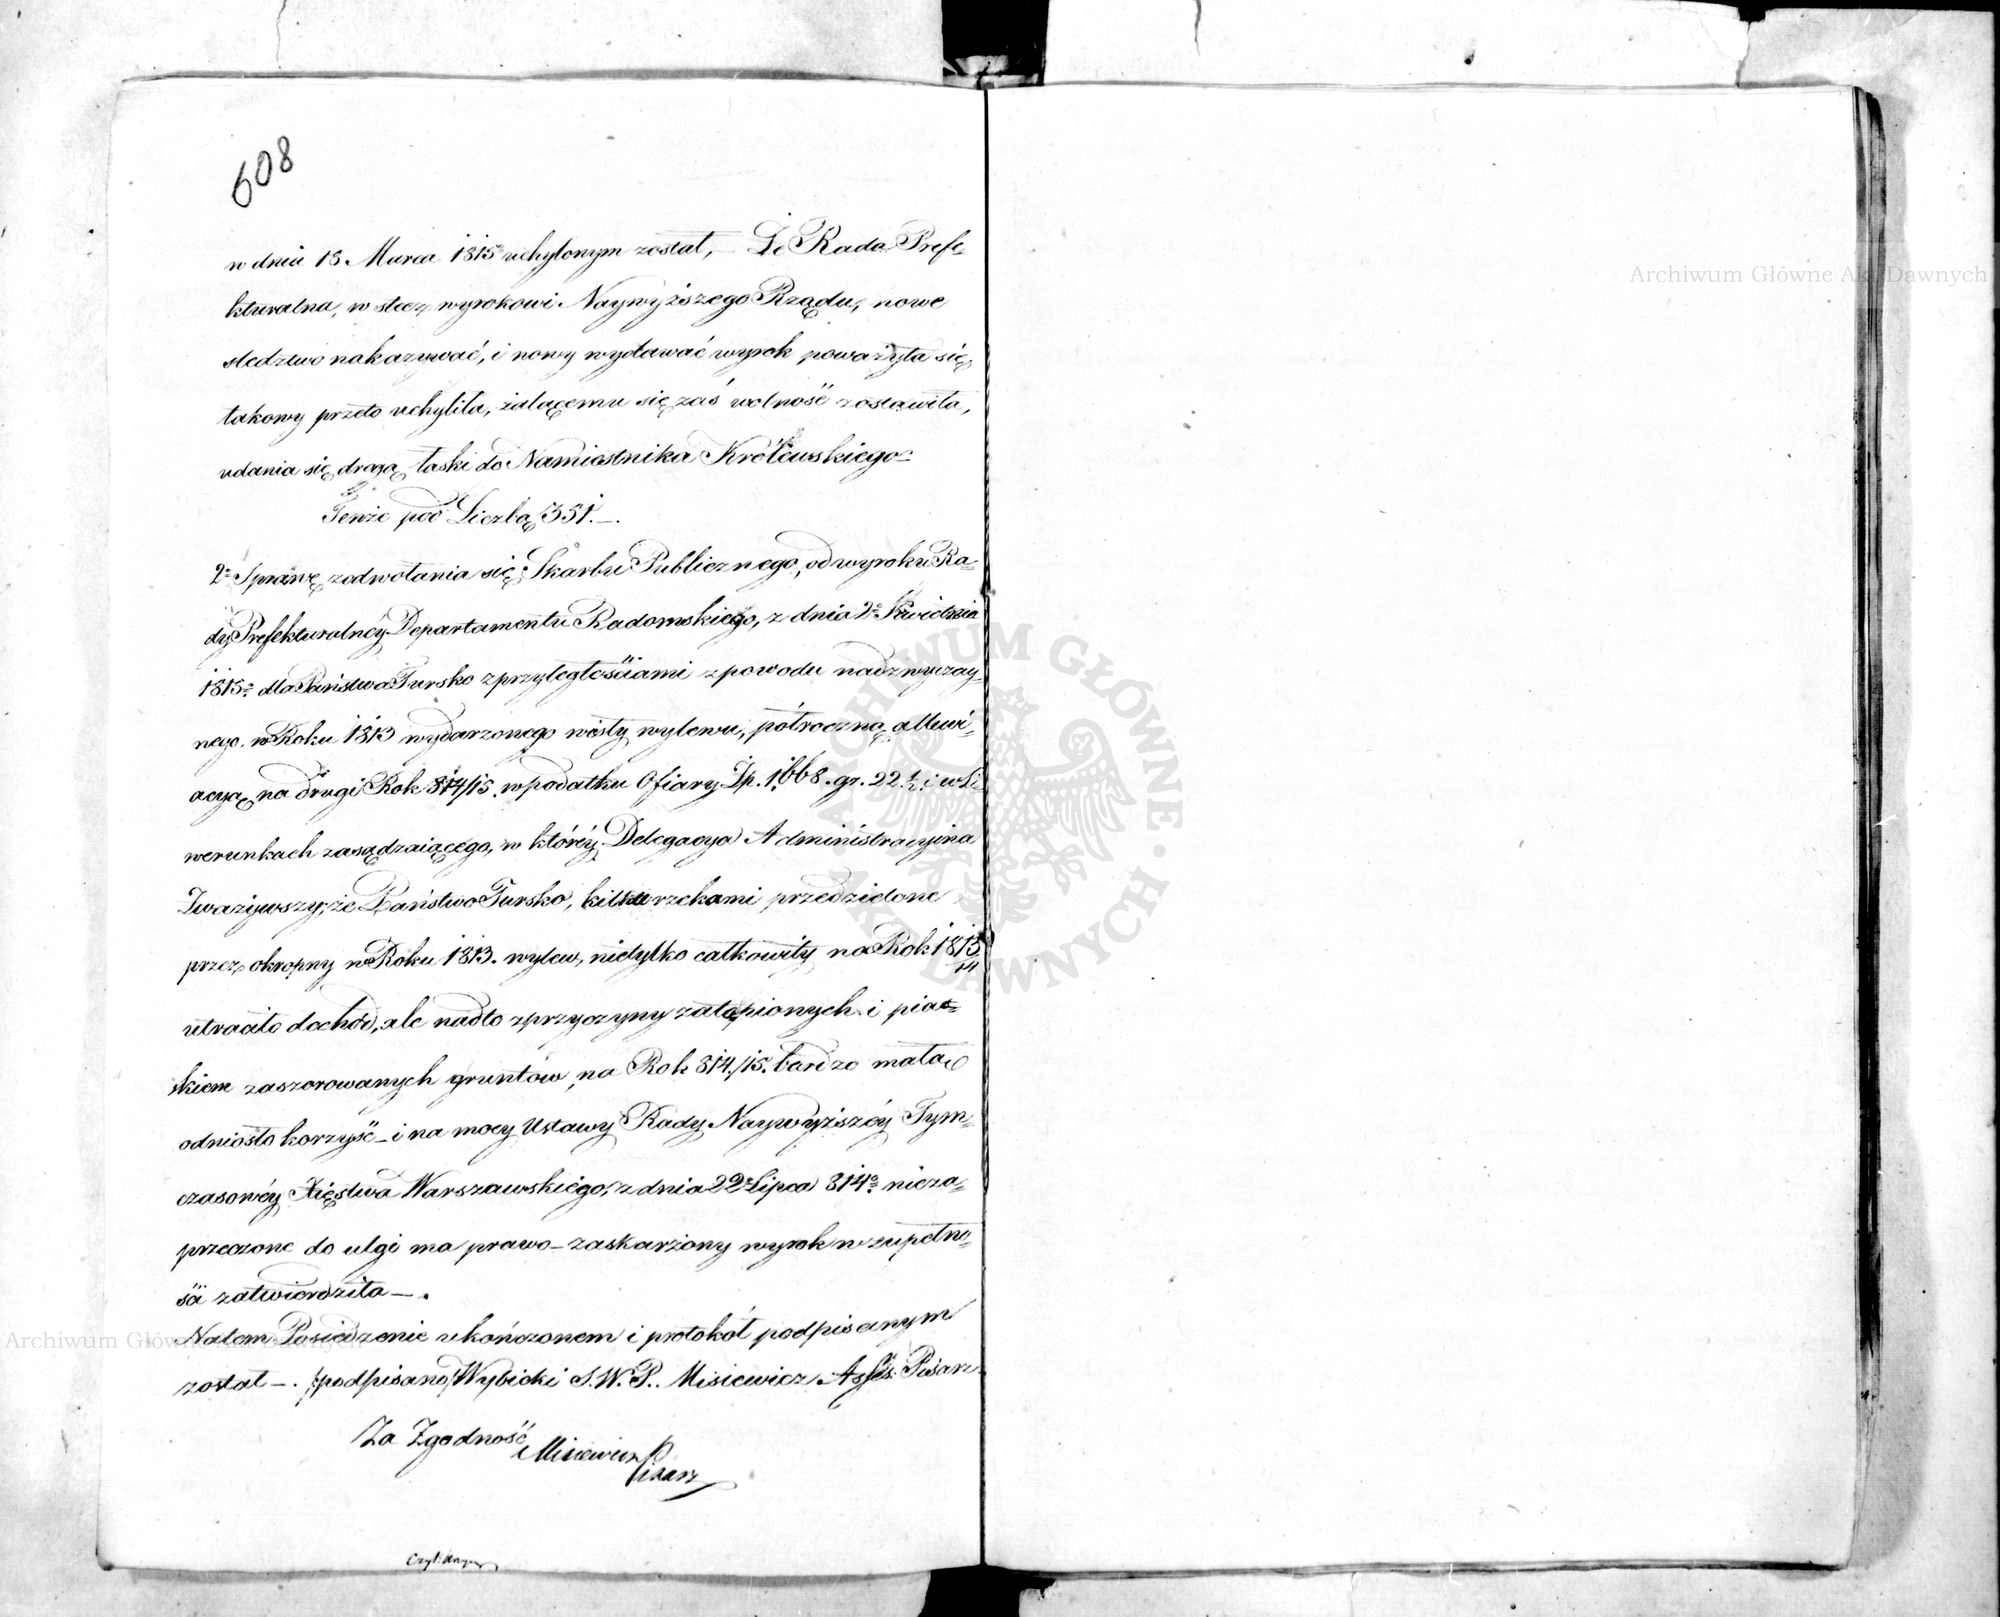 608
w dniu 13. Marca 1815º uchylonym został, – Że Rada Prefe-
kturalna, w stecz wyrokowi Naywyższego Rządu, nowe
sledztwo nakazywać, i nowy wydawać wyrok poważyła się,
takowy przeto uchyliła, żalącemu się zaś wolność zostawiła,
udania się drogą łaski do Namiestnika Królewskiego –
Tenże pod Liczbą 351. –.
2º Sprawę zodwołania się Skarbu Publicznego, od wyroku Ra-
dy Prefekturalnéy Departamentu Radomskiego, z dnia 2º Kwietnia
1815º dla Państwa Tursko z przyległościami z powodu nadzwyczay-
nego w Roku 1813 wydarzonego wisły wylewu, półroczną allewi-
acyą na drugi Rok 814/15. w podatku Ofiary Zp. 1668. gr. 22 ½. i w Li
werunkach zasądzaiącego, w któréy Delegacya Administracyina
Zważywszy, że Państwo Tursko, kilku rzekami przedzielone
przez okropny w Roku 1813. wylew, nietylko całkowity na Rok 1813/14
utraciło dochód, ale nadto z przyczyny zatopionych i pia-
skiem zaszorowanych gruntów, na Rok 814/15. bardzo mała
odniosło korzyść – i na mocy Ustawy Rady Naywyższéy Tym-
czasowéy Xięstwa Warszawskiego, z dnia 22º Lipca 814º nieza-
przeczone do ulgi ma prawo – zaskarżony wyrok w zupełno-
ści zatwierdziła –.
Natem Posiedzenie ukończonem i protokół podpisanym
został –. /podpisano/ Wybicki S. W. P. Misiewicz Assés. Pisarz
Za Zgodność
Misiewicz Pisarz
Archiwum Główne Akt Dawnych
Archiwum Główne Akt Dawnych
ARCHIWUM GŁÓWNE · AKT DAWNYCH ·